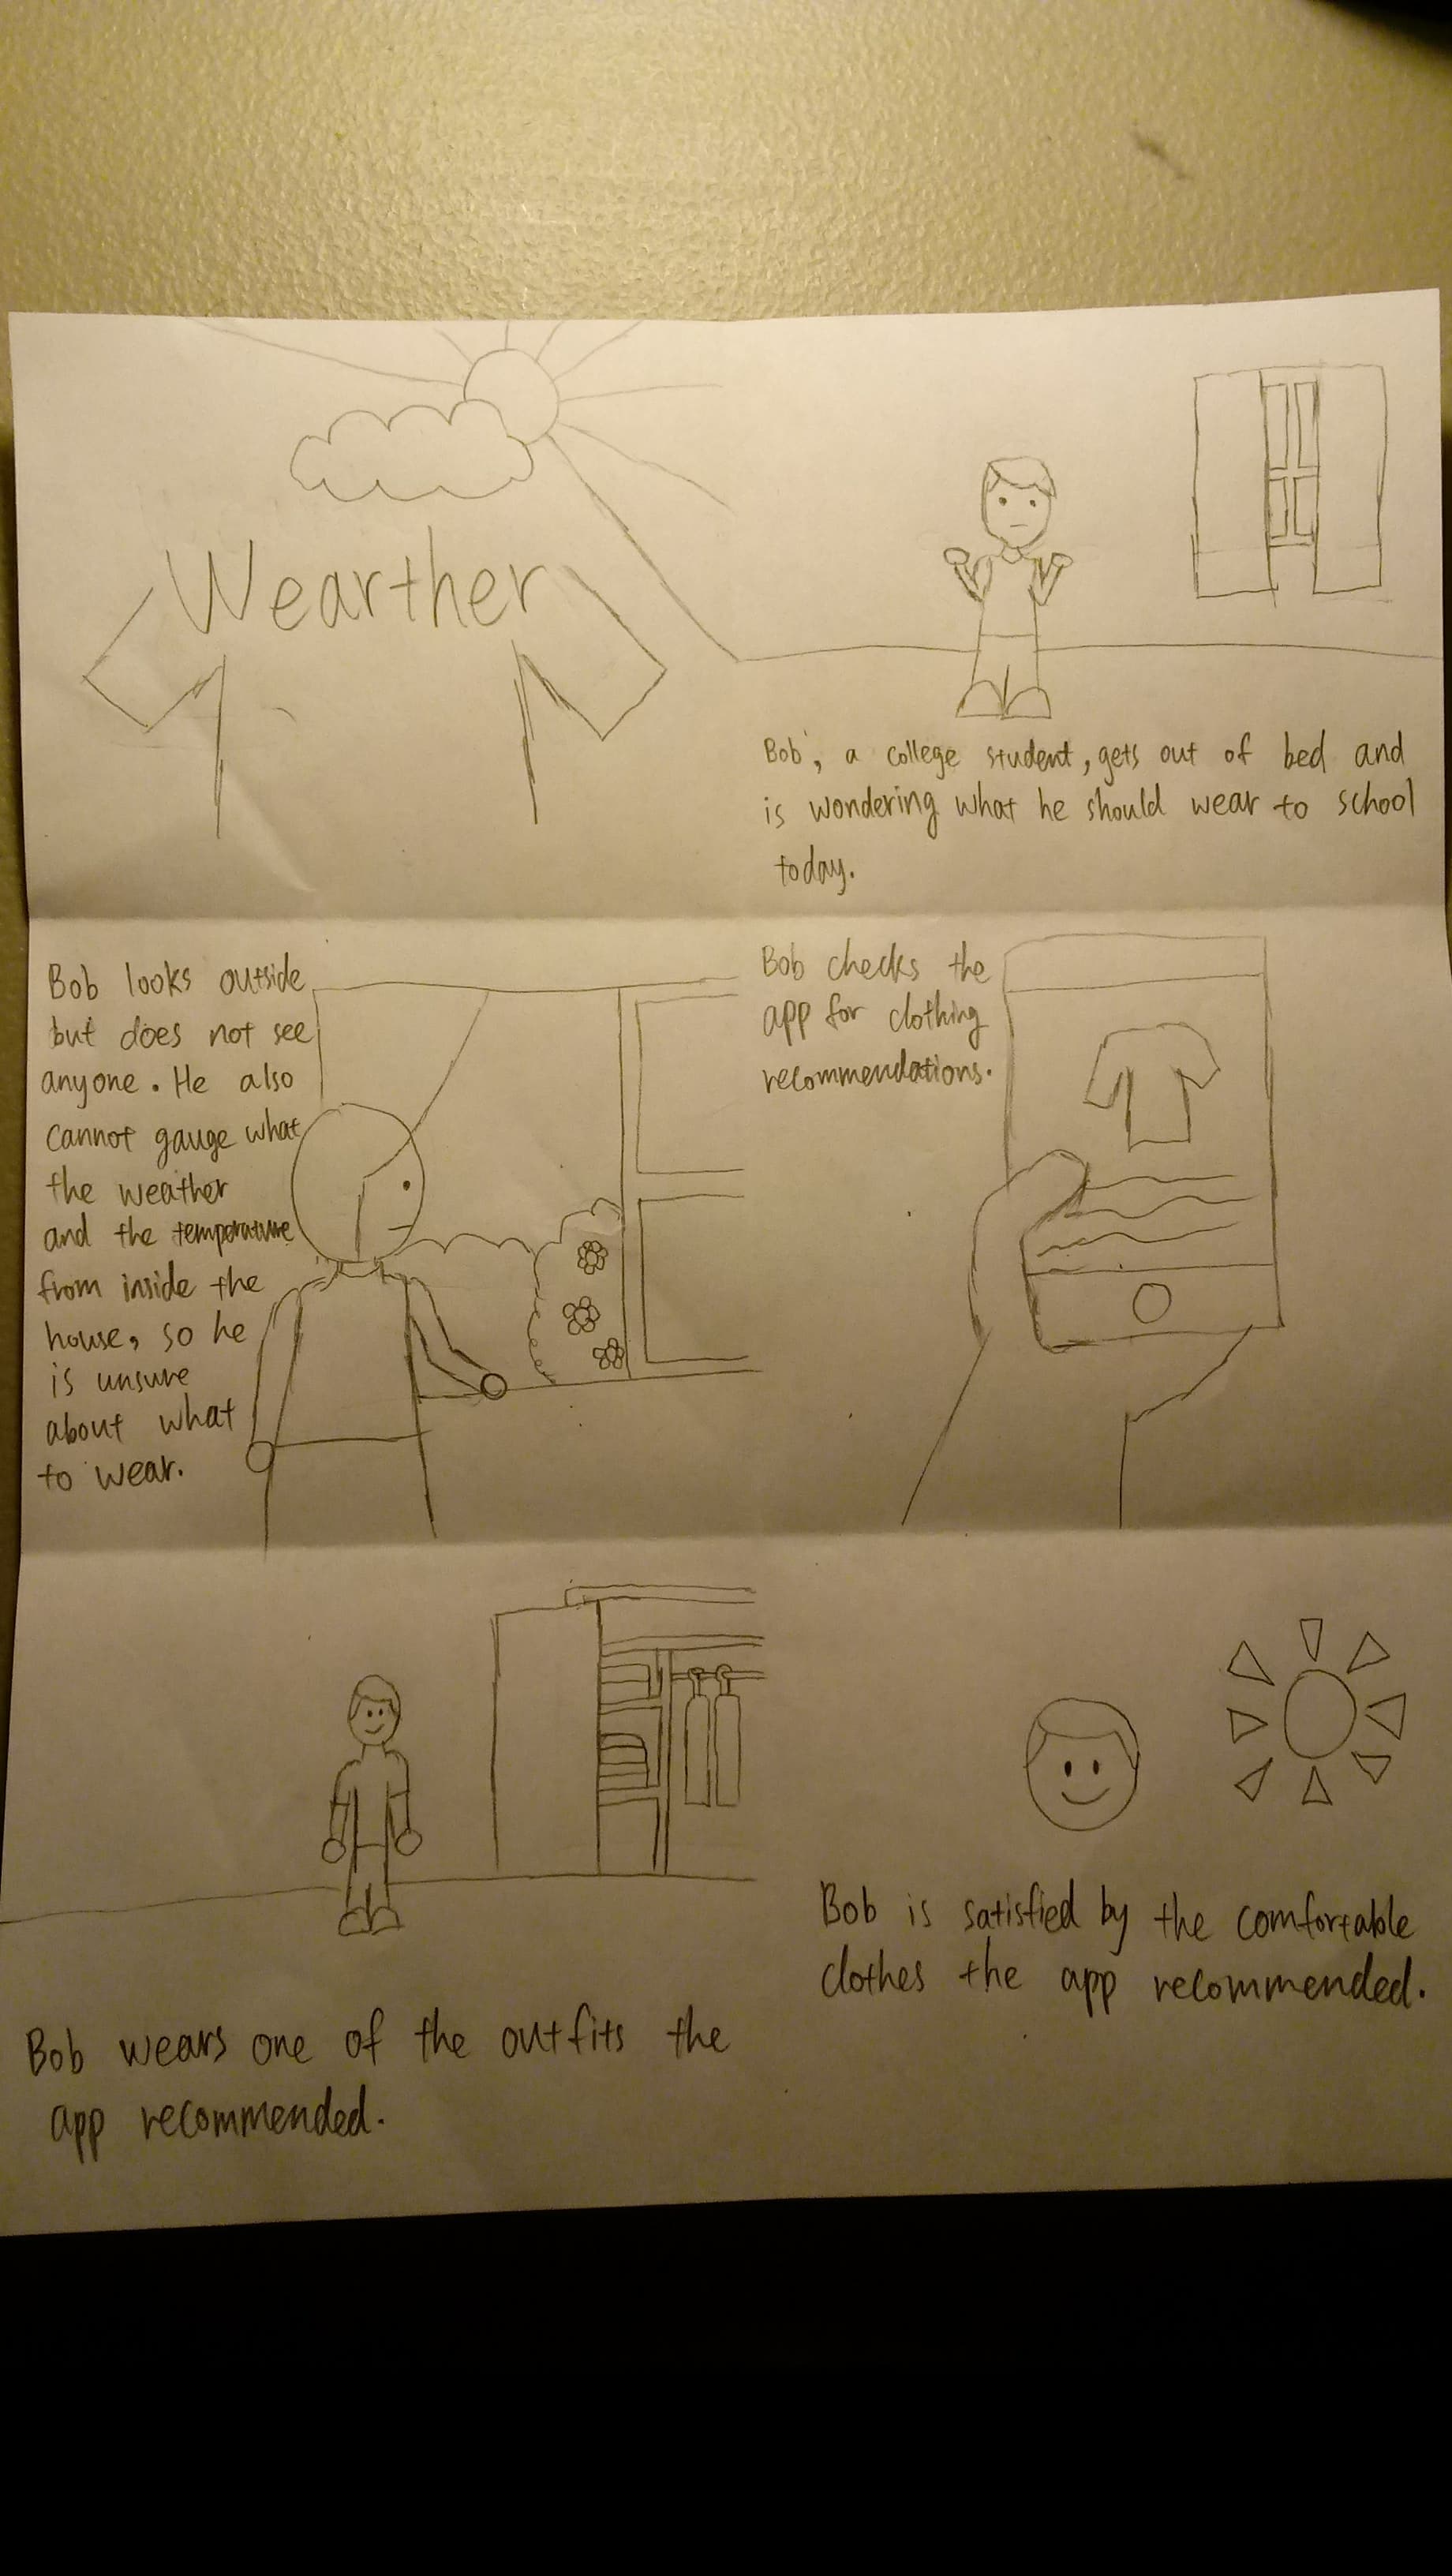 Wearther
Bob, a college student, gets out of bed and
is wondering what he should wear to school
today.
Bob looks outside
but does not see
anyone. He also
cannot gauge what
the weather
and the temperature
from inside the
house, so he
is unsure
about what
to wear.
Bob checks the
app for clothing
recommendations.
Bob wears one of the outfits the
app recommended.
Bob is satisfied by the comfortable
clothes the app recommended.